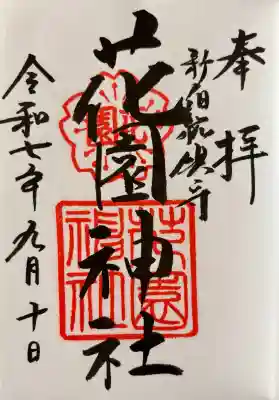 奉拝
新宿総鎮守
花園神社
令和七年九月十日
花園神社